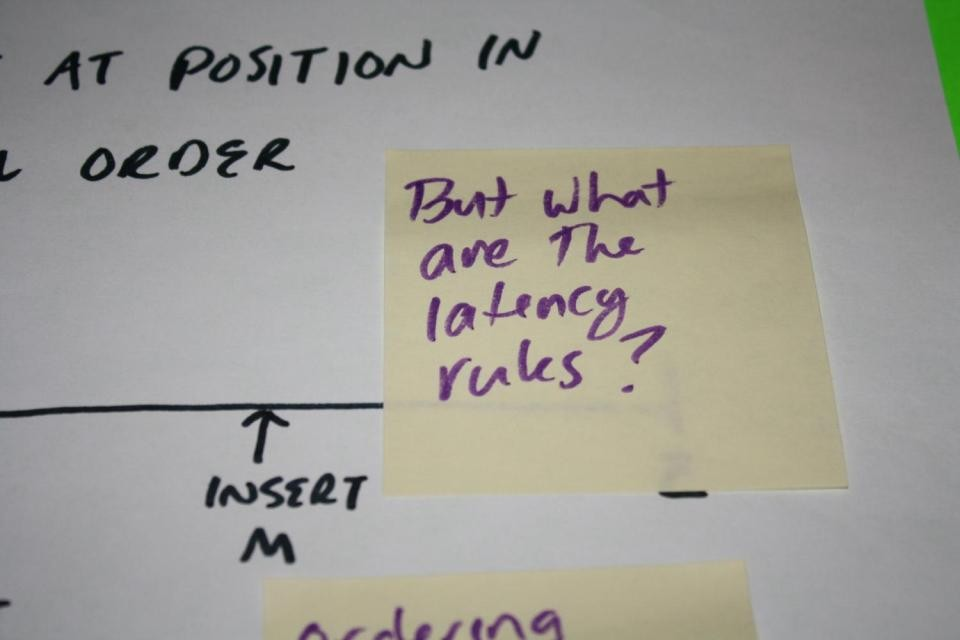 AT POSITION IN
ORDER
But what
are the
latency
rules?
INSERT
M
ordering